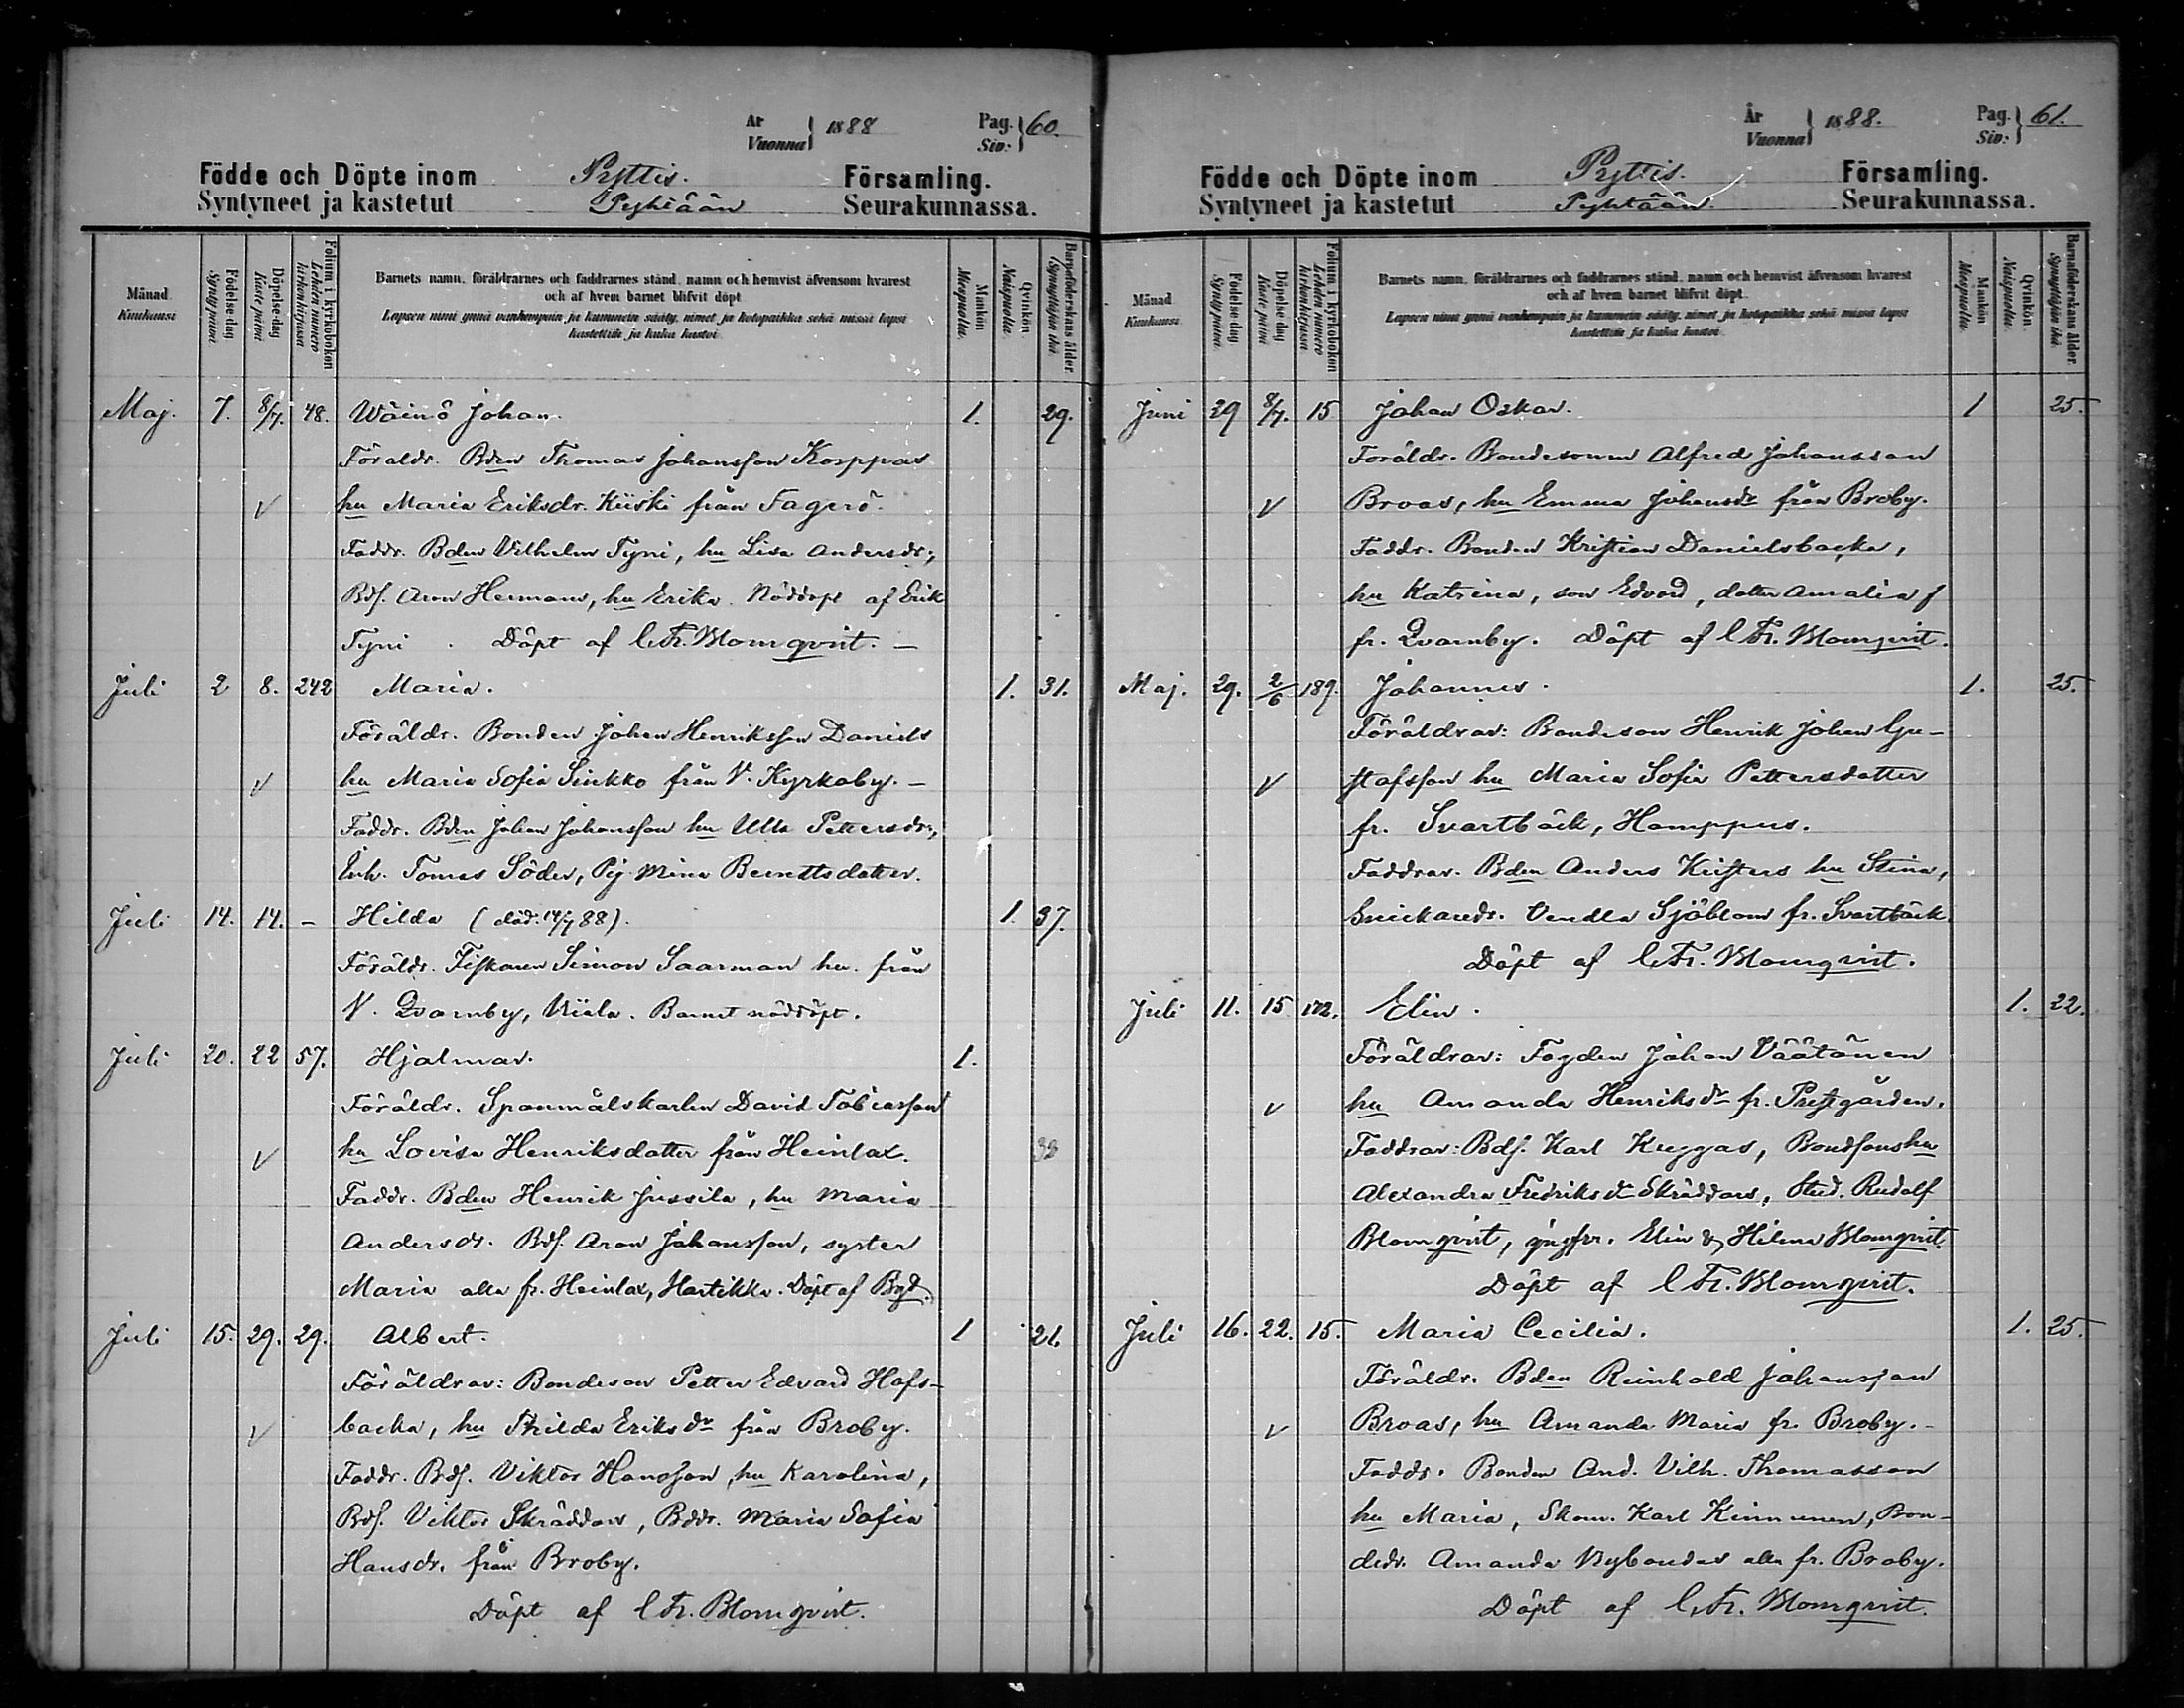 År
Vuonna } 1888 Pag. Siv: } 60.
Födde och Döpte inom Pyttis. Församling.
Syntyneet ja kastetut Pyhtään Seurakunnassa.
Månad Kuukausi
Födelse dag Syntypäivä
Döpelse-dag Kastepäivä
Folium i kyrkoboken Lehden numero kirkonkirjassa
Barnets namn, föräldrarnes och faddrarnes stånd, namn och hemvist äfvensom hvarest
och af hvem barnet blifvit döpt.
Lapsen nimi ynnä vanhempain ja kummein sääty, nimet ja kotopaikka sekä missä lapsi
kastettiin ja kuka kastoi.
Mankön Miespuolta.
Qvinkön Naispuolta.
Barnaföderskans ålder. Synnyttäjän ikä.
Maj. 7. 8/7. 48. Wäinö Johan. 1. 29.
Föraldr. Bden Thomas Johansson Korppas
hu Maria Eriksdr. Kiiski från Fagerö.
Faddr. Bden Vilhelm Tyni, hu Lisa Andersdr.,
Bds. Aron Hermans, hu Erika. Nöddöpt af Erik
Tyni. Döpt af C.Fr. Blomqvist. –
Juli 2 8. 242 Maria. 1. 31.
Föräldr. Bonden Johan Henriksson Daniels
hu Maria Sofia Sinkko från V. Kyrkoby. –
Faddr. Bden Johan Johansson hu Ulla Pettersdr.,
Inh. Tomas Söder, Pig. Mina Berndtsdatter.
Juli 14. 14. – Hilda (död: 14/7 88). 1. 37.
Föräldr. Fiskaren Simon Saarman hu. från
V. Qvarnby, Viiala. Barnet nöddöpt.
Juli 20. 22 57. Hjalmar. 1.
Föräldr. Spanmålskarlen David Tobiasson
hu Lovisa Henriksdatter från Heinlax. 33
Faddr. Bden Henrik Jussila, hu Maria
Andersdr. Bds. Aron Johansson, syster
Maria alla fr. Heinlax, Hartikka. Döpt af Bqt.
Juli 15. 29. 29. Albert. 1 21.
Föräldrar: Bondeson Petter Edvard Hafs-
backa, hu Thilda Eriksdr från Broby.
Faddr. Bds. Viktor Hansson, hu Karolina,
Bds. Viktor Skräddars, Bddr. Maria Sofia
Hansdr. från Broby.
Döpt af C Fr. Blomqvist.
År
Vuonna } 1888. Pag. Siv: } 61.
Födde och Döpte inom Pyttis. Församling.
Syntyneet ja kastetut Pyhtään. Seurakunnassa.
Månad Kuukausi
Födelse dag Syntypäivä
Döpelse dag Kastepäivä
Folium i kyrkoboken Lehden numero kirkonkirjassa
Barnets namn, föräldrarnes och faddrarnes stånd, namn och hemvist äfvensom hvarest
och af hvem barnet blifvit döpt.
Lapsen nimi ynnä vanhempain ja kummein sääty, nimet ja kotopaikka sekä missä lapsi
kastettiin ja kuka kastoi.
Mankön Miespuolta.
Qvinkön Naispuolta.
Barnaföderskans ålder. Synnyttäjän ikä.
Juni 29 8/7. 15 Johan Oskar. 1 25.
Föräldr. Bondesonen Alfred Johansson
Broas, hu Emma Johansdr från Broby.
Faddr. Bonden Kristian Danielsbacka,
hu Katrina, son Edvard, dotter Amalia
fr. Qvarnby. Döpt af C Fr. Blomqvist.
Maj. 29. 2/6 189. Johannes. 1. 25.
Föräldrar: Bondeson Henrik Johan Gu-
stafsson hu Maria Sofia Pettersdatter
fr. Svartbäck, Hamppus.
Faddrar. Bden Anders Kristers hu Stina,
Snickaredr. Vendla Sjöblom fr. Svartbäck.
Döpt af C.Fr. Blomqvist.
Juli 11. 15 172. Elin. 1. 22.
Föräldrar: Fogden Johan Väätänen
hu Amanda Henriksdr fr. Prestgården.
Faddrar: Bds. Karl Kuggas, Bondsonshu
Alexandra Fredriksdr Skräddars, Stud. Rudolf
Blomqvist, jngfrr. Elin & Hilma Blomqvist.
Döpt af C Fr. Blomqvist.
Juli 16. 22. 15. Maria Cecilia. 1. 25.
Föräldr. Bden Reinhold Johansson
Broas, hu Amanda Maria fr. Broby. –
Faddr. Bonden And. Vilh. Thomasson
hu Maria, Skom. Karl Kinnunen, Bon-
dedr. Amanda Nybondas alla fr. Broby.
Döpt af C.Fr. Blomqvist.